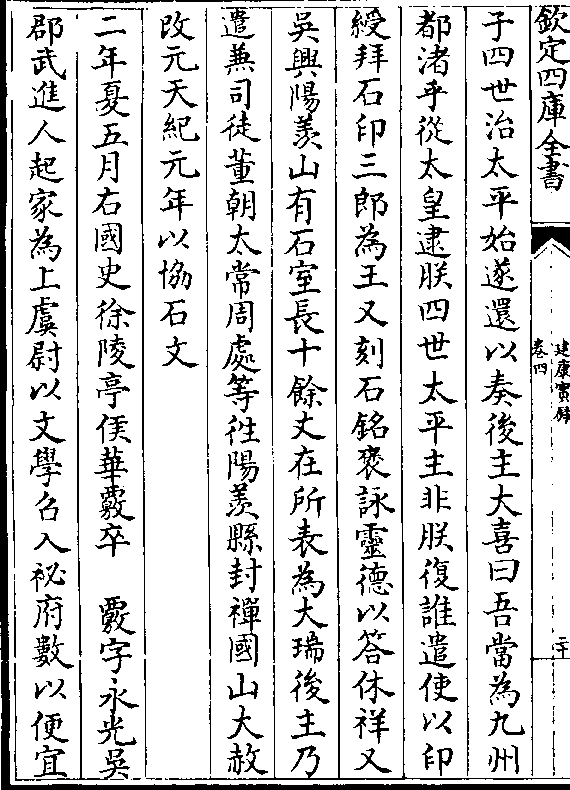 欽定四庫全書
建康實錄
卷四
二十
子四世治太平始遂還以奏後主大喜曰吾當為九州
都渚乎從太皇逮朕四世太平主非朕復誰遣使以印
綬拜石印三郎為王又刻石銘褒詠靈德以答休祥又
吳興陽羨山有石室長十餘丈在所表為大瑞後主乃
遣兼司徒董朝太常周處等往陽羨縣封禪國山大赦
改元天紀元年以協石文
二年夏五月右國史徐陵亭侯華覈卒　覈字永光吳
郡武進人起家為上虞尉以文學召入祕府數以便宜